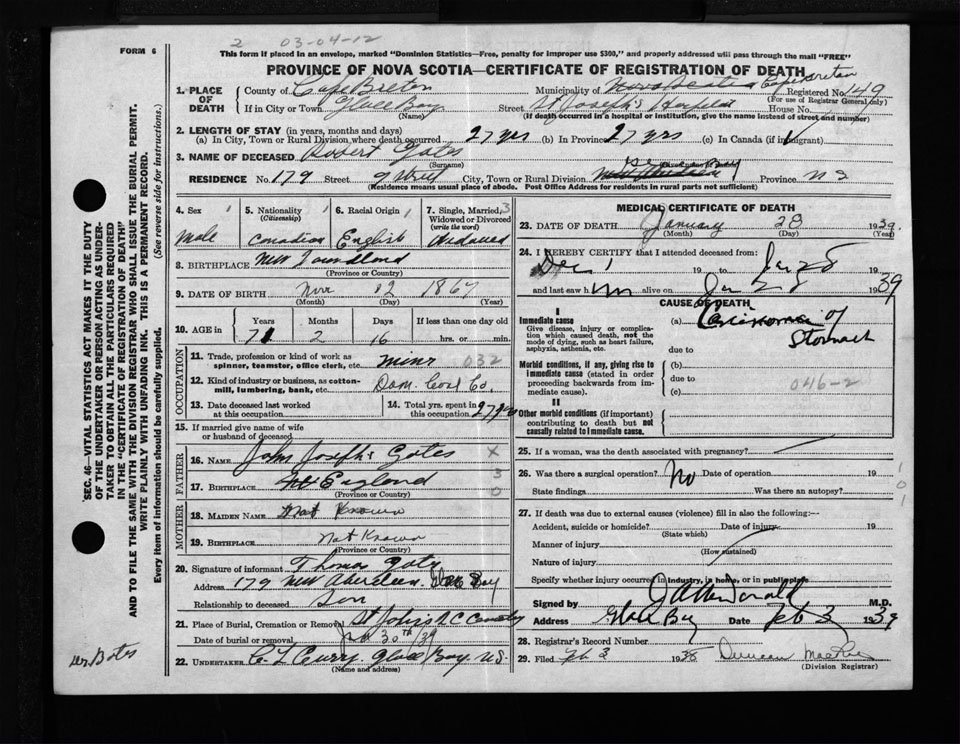 2 03-04-12
FORM 6
This form if placed in an envelope, marked "Dominion Statistics—Free, penalty for improper use $300," and properly addressed will pass through the mail "FREE"
PROVINCE OF NOVA SCOTIA—CERTIFICATE OF REGISTRATION OF DEATH
1. PLACE OF DEATH
County of Cape Breton Municipality of Cape Breton Registered No. 149
(For use of Registrar General only)
If in City or Town Glace Bay Street St Joseph's House No.
(Name) (If death occurred in a hospital or institution, give the name instead of street and number)
2. LENGTH OF STAY (in years, months and days)
(a) In City, Town or Rural Division where death occurred 27 yrs (b) In Province 27 yrs (c) In Canada (if immigrant)
3. NAME OF DECEASED Robert
(Surname)
RESIDENCE No. 179 Street 9 Street City, Town or Rural Division Province N S
(Residence means usual place of abode. Post Office Address for residents in rural parts not sufficient)
4. Sex 1
Male
5. Nationality 1
(Citizenship)
Canadian
6. Racial Origin 1
English
7. Single, Married, 3
Widowed or Divorced
(write the word)
Widowed
8. BIRTHPLACE New Foundland
(Province or Country)
9. DATE OF BIRTH Nov 12 1867
(Month) (Day) (Year)
10. AGE in
Years Months Days If less than one day old
71 2 16 hrs. or min.
OCCUPATION
11. Trade, profession or kind of work as
spinner, teamster, office clerk, etc. 032
12. Kind of industry or business, as cotton-
mill, lumbering, bank, etc. Dom. Coal Co.
13. Date deceased last worked
at this occupation
14. Total yrs. spent in
this occupation 27 yrs
15. If married give name of wife
or husband of deceased
FATHER
16. Name John Joseph Gates X
17. Birthplace England 3
(Province or Country) 0
MOTHER
18. Maiden Name Not Known
19. Birthplace Not Known
(Province or Country)
20. Signature of informant Thomas
Address 179 New Aberdeen Glace Bay
Relationship to deceased Son
21. Place of Burial, Cremation or Removal
Date of burial or removal 30th/39
22. UNDERTAKER C L Curry Glace Bay N.S.
(Name and address)
MEDICAL CERTIFICATE OF DEATH
23. DATE OF DEATH January 28 1939
(Month) (Day) (Year)
24. I HEREBY CERTIFY that I attended deceased from:
Dec 1 19 to Jan 28 19
and last saw him alive on Jan 28 1939
CAUSE OF DEATH
I
Immediate cause
Give disease, injury or complica-
tion which caused death, not the
mode of dying, such as heart failure,
asphyxia, asthenia, etc.
(a) Carcinoma of
Stomach
due to
Morbid conditions, if any, giving rise to
immediate cause (stated in order
proceeding backwards from im-
mediate cause).
(b)
due to
(c) 046-2
II
Other morbid conditions (if important)
contributing to death but not
causally related to immediate cause.
25. If a woman, was the death associated with pregnancy?
26. Was there a surgical operation? No Date of operation 19
State findings Was there an autopsy?
101
27. If death was due to external causes (violence) fill in also the following:—
Accident, suicide or homicide? Date of injury 19
(State which)
Manner of injury
(How sustained)
Nature of injury
Specify whether injury occurred in industry, in home, or in public place
Signed by M.D.
Address Glace Bay Date Feb 3 1939
28. Registrar's Record Number
29. Filed Feb 3 193 Duncan
(Division Registrar)
SEC. 46—VITAL STATISTICS ACT MAKES IT THE DUTY
OF THE UNDERTAKER OR PERSON ACTING AS UNDER-
TAKER TO OBTAIN ALL THE PARTICULARS REQUIRED
IN THE "CERTIFICATE OF REGISTRATION OF DEATH"
AND TO FILE THE SAME WITH THE DIVISION REGISTRAR WHO SHALL ISSUE THE BURIAL PERMIT.
WRITE PLAINLY WITH UNFADING INK. THIS IS A PERMANENT RECORD.
Every item of information should be carefully supplied. (See reverse side for instructions.)